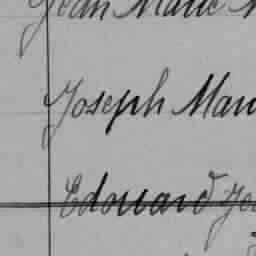 Jean Marie
Joseph Mari
Edouard Jos